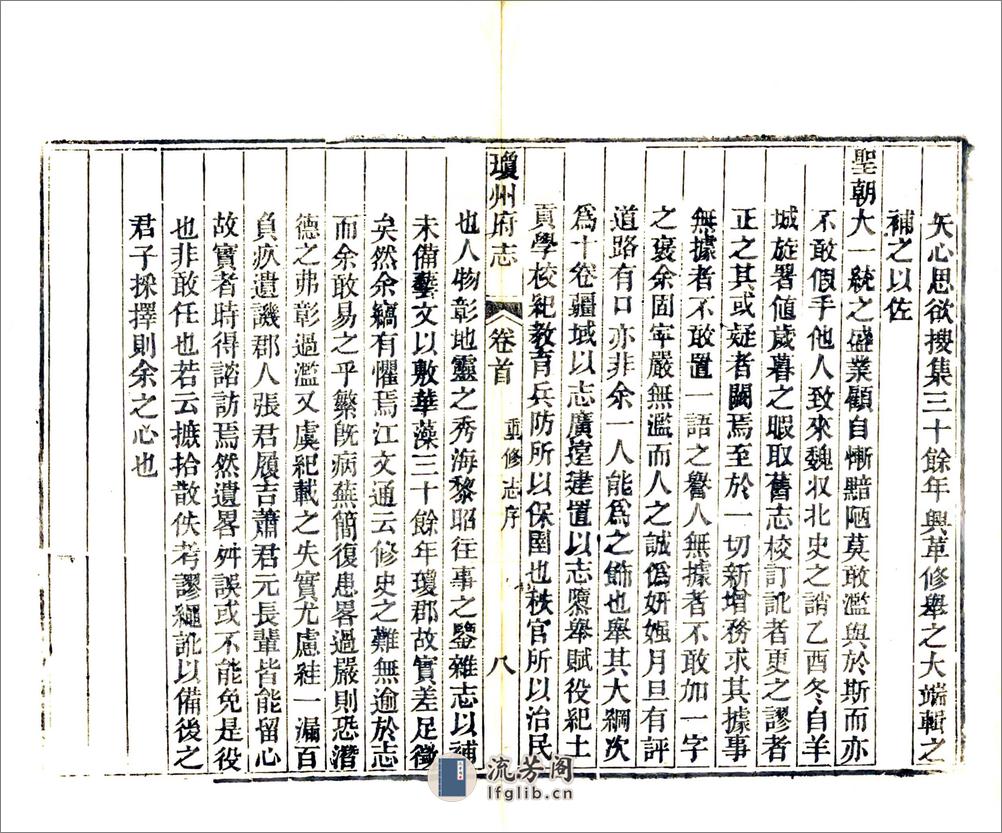 矢心思欲搜集三十餘年興革修舉之大端輯之
補之以佐
聖朝大一統之盛業顧自慚黯陋莫敢濫與於斯而亦
不敢假手他人致來魏収北史之誚乙酉冬自羊
城旋署値歲暮之暇取舊志校訂訛者更之謬者
正之其或疑者闕焉至於一切新增務求其據事
無據者不敢置一語之譽人無據者不敢加一字
之褒余固寜嚴無濫而人之誠僞妍媸月旦有評
道路有口亦非余一人能爲之飾也舉其大綱次
爲十卷疆域以志廣輪建置以志隳舉賦役紀土
貢學校紀教育兵防所以保圉也秩官所以治民
瓊州府志 卷首 重修志序 八
也人物彰地靈之秀海黎昭往事之鑒雜志以補
未備藝文以敷華藻三十餘年瓊郡故實差足徵
矣然余竊有懼焉江文通云修史之難無逾於志
而余敢易之乎蘩旣病蕪簡復患畧過嚴則恐潛
德之弗彰過濫又虞紀載之失實尤慮絓一漏百
負疚遺譏郡人張君履吉蕭君元長輩皆能留心
故實者時得諮訪焉然遺畧舛誤或不能免是役
也非敢任也若云摭拾散佚考謬繩訛以備後之
君子採擇則余之心也
流芳阁
lfglib.cn